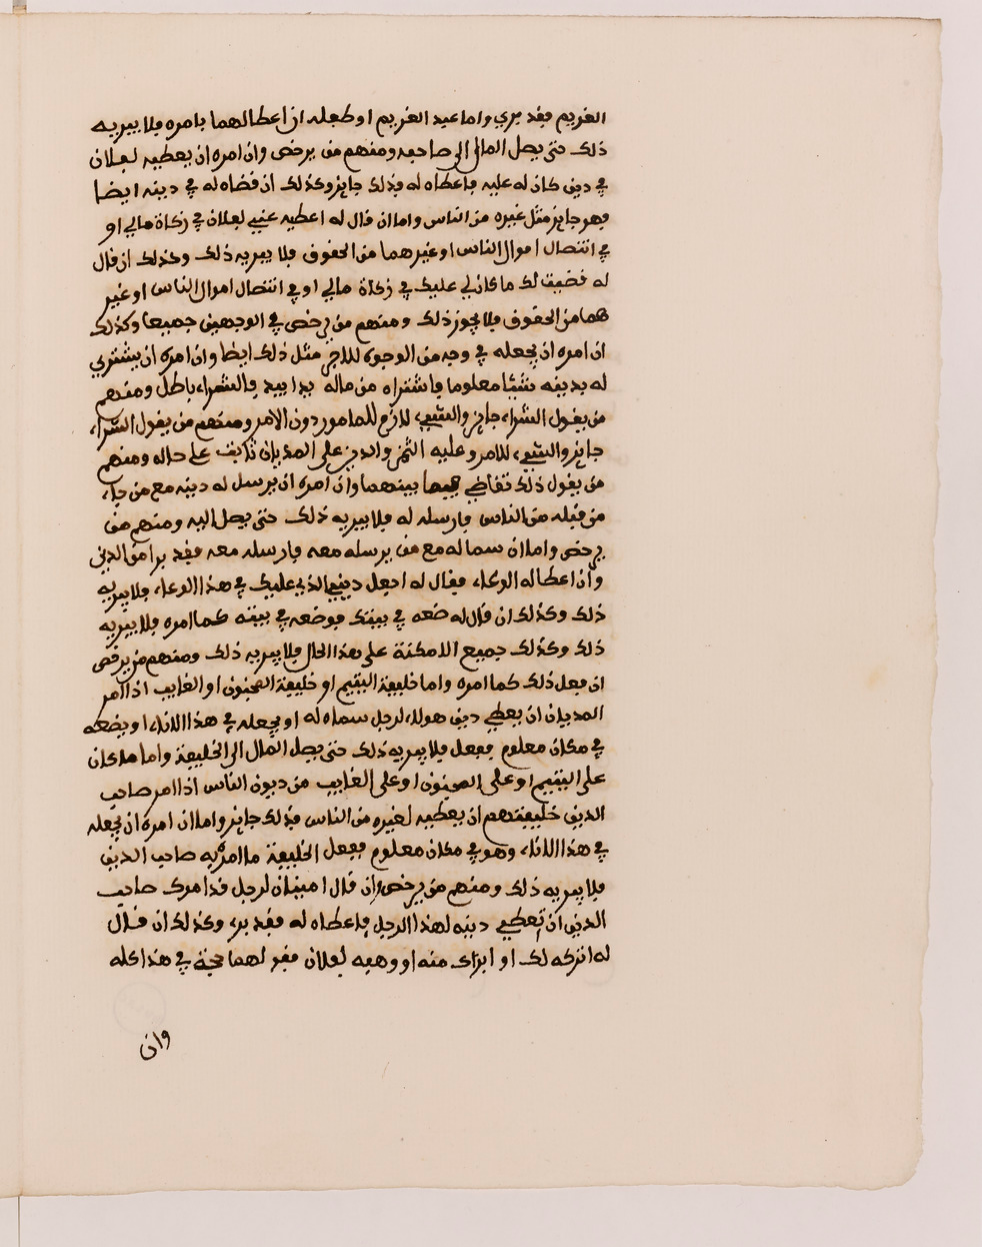 الغريم فقد بري واما عبد الغريم او طفله ان اعطا لهما بامره فلا يبريه
ذلك حتى يصل المال الى صاحبه ومنهم من يرخص وان امره ان يعطيه لفلان
في دين كان له عليه فاعطاه له فذلك جايز وكذلك ان قضاه له في دينه ايضا
فهو جايز مثل غيره من الناس واما ان قال له اعطيه عني لفلان في زكاة مالي او
في انتصال اموال الناس او غيرهما من الحقوق فلا يبريه ذلك وكذلك ان قال
له قضيت لك ما كان لي عليك في زكاة مالي او في انتصال اموال الناس او غير
هما من الحقوق فلا يجوز ذلك ومنهم من يرخص في الوجهين جميعا وكذلك
ان امره ان يجعله في وجه من الوجوه للاجر مثل ذلك ايضا وان امره ان يشتري
له بدينه شيئا معلوما فاشتراه من ماله يدا بيد فالشراء باطل ومنهم
من يقول الشراء جايز والشيء لازم للمامور دون الامر ومنهم من يقول الشراء
جايز والشيء للامر وعليه الثمن والدين على المديان ثابت على حاله ومنهم
من يقول ذلك تقاضي فيما بينهما وان امره ان يرسل له دينه مع من جاء
من قبله من الناس فارسله له فلا يبريه ذلك حتى يصل اليه ومنهم من
يرخص واما ان سما له مع من يرسله معه فارسله معه فقد برا من الدين
وان اعطا له الوعاء فقال له اجعل ديني الذي عليك في هذا الوعاء فلا يبريه
ذلك وكذلك ان قال له ضعه في بيتك فوضعه في بيته كما امره فلا يبريه
ذلك وكذلك جميع الامكنة على هذا الحال فلا يبريه ذلك ومنهم من يرخص
ان فعل ذلك كما امره واما خليفة اليتيم او خليفة المجنون او الغايب اذا امر
المديان ان يعطي دين هولاء لرجل سماه له او يجعله في هذا الاناء او يضعه
في مكان معلوم ففعل فلا يبريه ذلك حتى يصل المال الى الخليفة واما ما كان
على اليتيم او على المجنون او على الغايب من ديون الناس اذا امر صاحب
الدين خليفتهم ان يعطيه لغيره من الناس فذلك جايز واما ان امره ان يجعله
في هذا الاناء وهو في مكان معلوم ففعل الخليفة ما امره به صاحب الدين
فلا يبريه ذلك ومنهم من يرخص وان قال امينان لرجل قد امرك صاحب
الدين ان تعطي دينه لهذا الرجل فاعطاه له فقد برء وكذلك ان قال
له اتركه لك او ابراك منه او وهبه لفلان فقد لهما حجة في هذا كله
وان